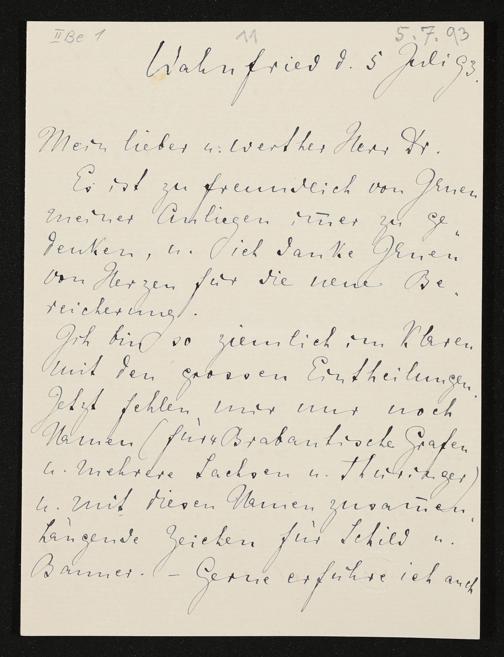 II Be 1
11
5.7.93
Wahnfried d. 5 Juli 93.
Mein lieber u. werther Herr Dr.
Es ist zu freundlich von Ihnen
meiner Anliegen im̄er zu ge„
denken, u. ich danke Ihnen
von Herzen für die neue Be„
reicherung.
Ich bin so ziemlich im Klaren
mit den grossen Eintheilungen.
Jetzt fehlen mir nur noch
Namen (für 4 Brabantische Grafen
u. mehrere Sachsen u. Thüringer)
u. mit diesen Namen zusam̄en„
hängende Zeichen für Schild u.
Banner. – Gerne erführe ich auch